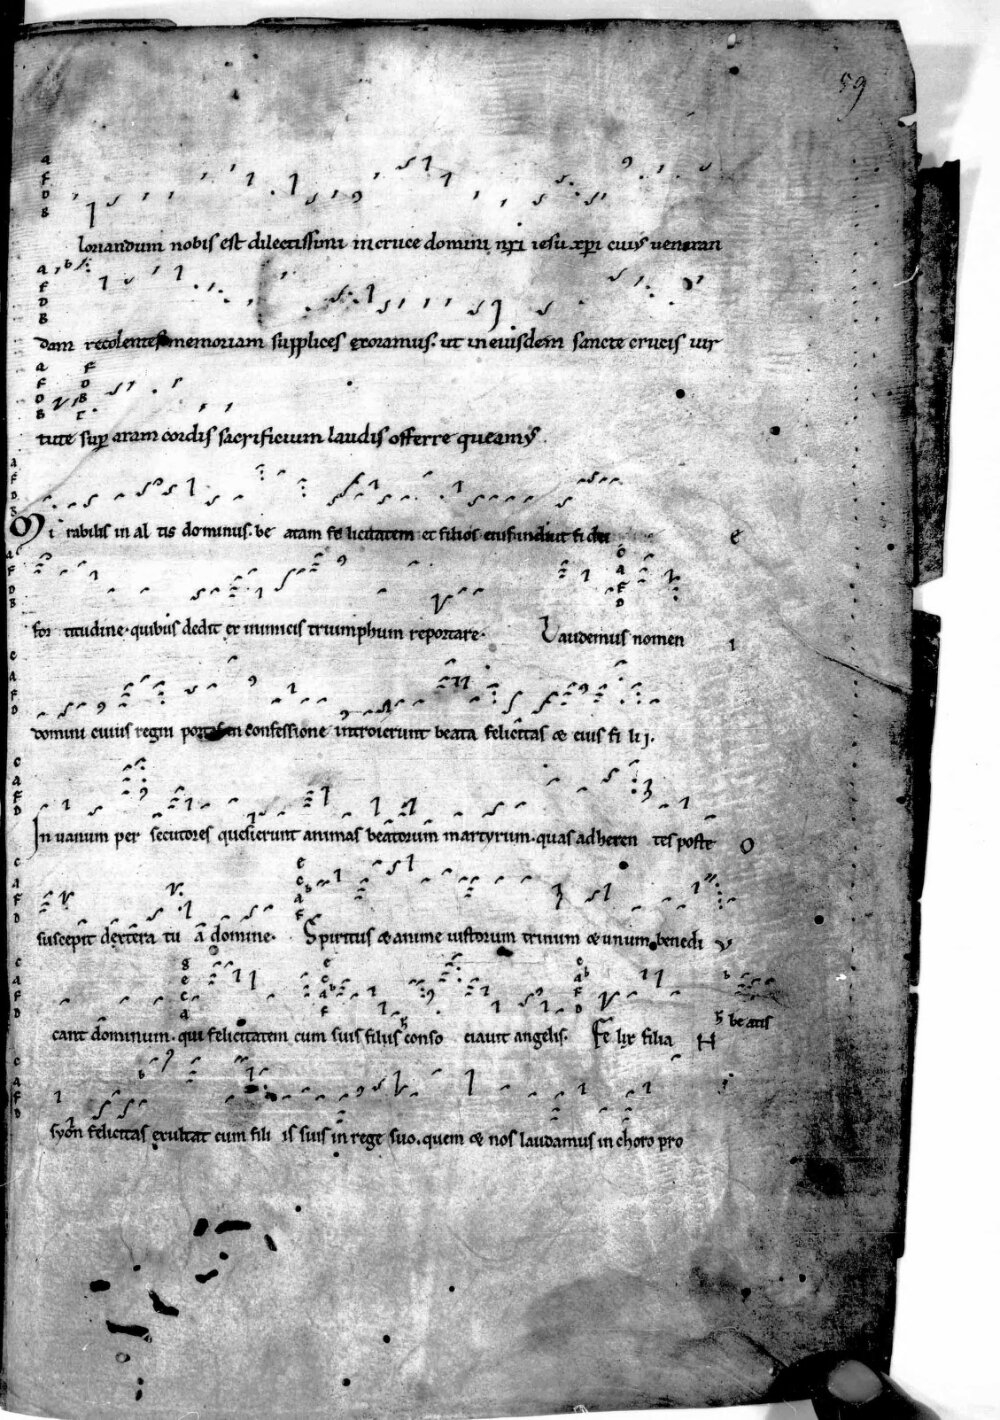 59
loriandum nobis est dilectissimi in cruce domini nri iesu xpi cuius veneran
dam recolentes memoriam supplices exoramus. ut in eiusdem sancte crucis vir
tute sup aram cordis sacrificium laudis offerre queamus.
Mi rabilis in al tis dominus. be atam fe licitatem et filios eius fidei e
for titudine. quibus dedit ex inimicis triumphum reportare. Laudemus nomen i
domini cuius regni portas in confessione introierunt beata felicitas & eius fi lii.
In vanum per secutores quesierunt animas beatorum martyrum. quas adheren tes poste o
suscepit dextera tu a domine. Spiritus & anime iustorum trinum & unum benedi v
cant dominum. qui felicitatem cum suis filiis conso ciavit angelis. Fe lix filia H be atis
syon felicitas exultat cum fili is suis in rege suo. quem & nos laudamus in choro pro